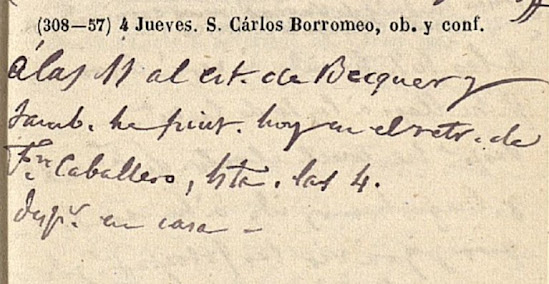 (308—57) 4 Jueves. S. Cárlos Borromeo, ob. y conf.
á las 11 al est. de Becquer y
tamb. he pint. hoy en el retr. de
Fn Caballero, hta. las 4.
desps. en casa —